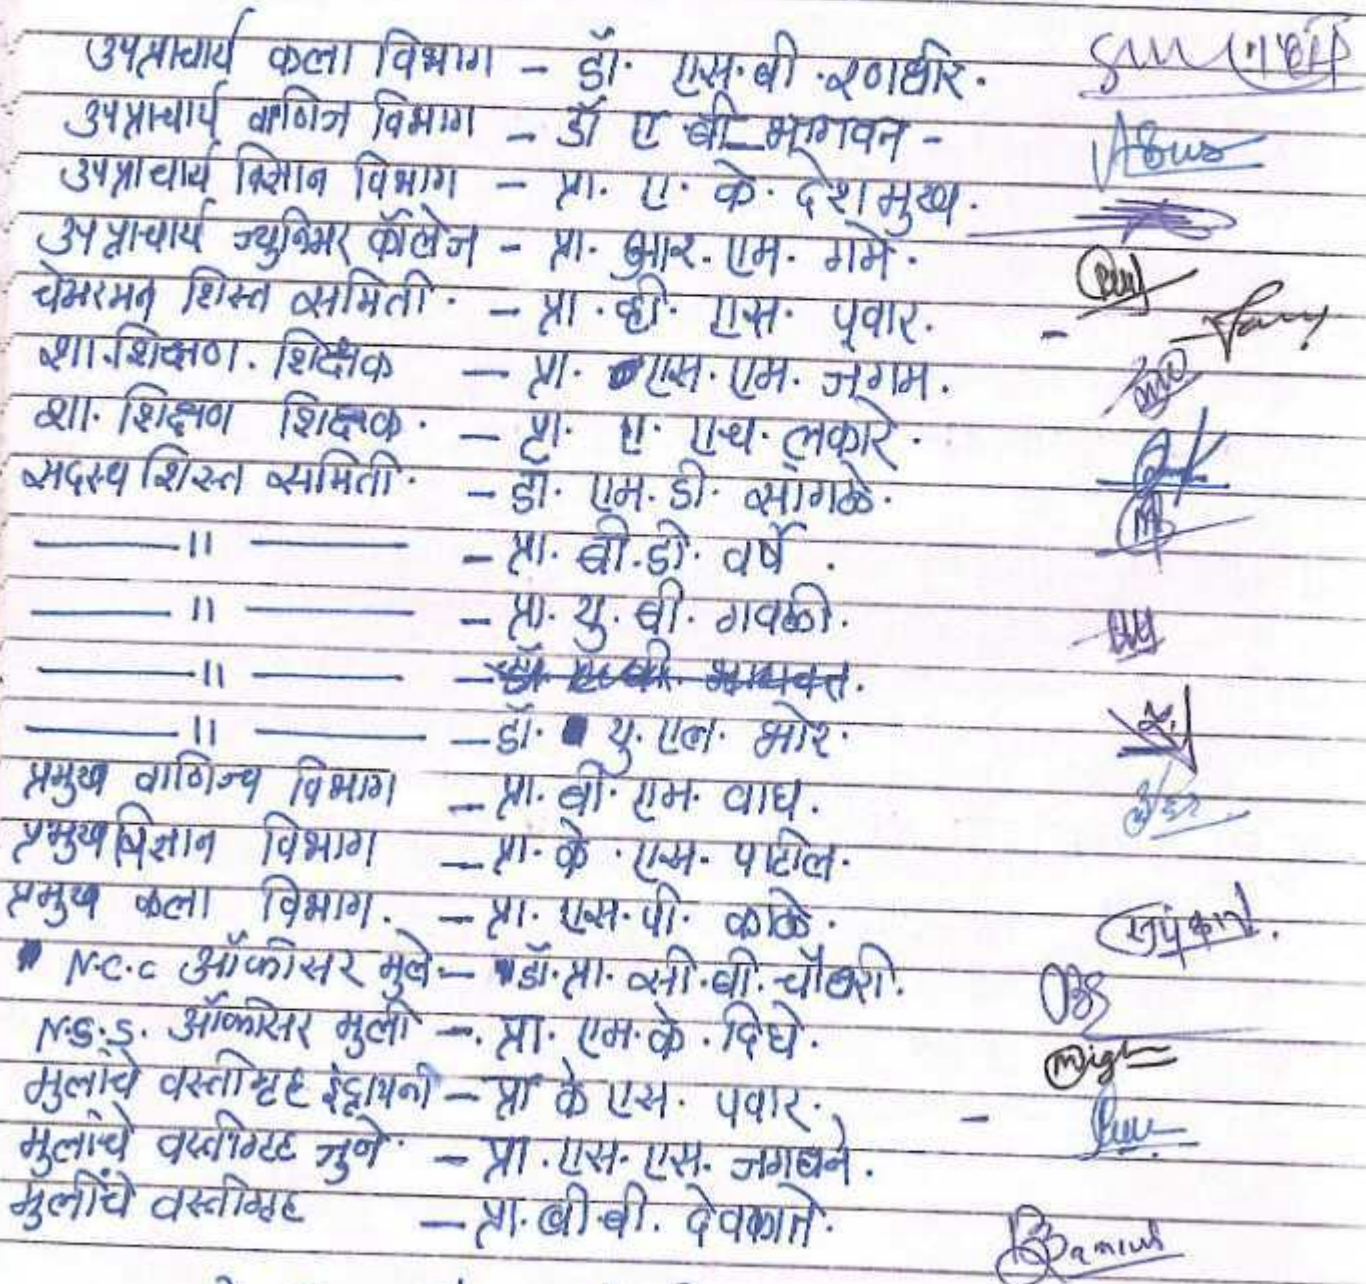 उपप्राचार्य कला विभाग - डॉ. एस. बी. रणधीर.
उपप्राचार्य वाणिज विभाग - डॉ ए बी भागवत -
उपप्राचार्य विज्ञान विभाग - प्रा. ए. के. देशमुख.
उपप्राचार्य ज्युनिअर कॉलेज - प्रा. आर. एम. गमे.
चेअरमन शिस्त समिती. - प्रा. व्ही. एस. पवार. -
शा. शिक्षण. शिक्षक - प्रा. एस. एम. जगम.
शा. शिक्षण शिक्षक. - प्रा. ए. एच. लकारे.
सदस्य शिस्त समिती. - डॉ. एम. डी. सांगळे.
— 11 — - प्रा. बी. डी. वर्पे.
— 11 — - प्रा. यु. बी. गवळी.
— 11 — -
— 11 — - डॉ. यु. एल. भोर.
प्रमुख वाणिज्य विभाग - प्रा. बी. एम. वाघ.
प्रमुख विज्ञान विभाग - प्रा. के. एस. पाटील.
प्रमुख कला विभाग. - प्रा. एस. पी. काळे.
N.C.C ऑफीसर मुले - डॉ. प्रा. सी. बी. चौधरी.
N.S.S. ऑफीसर मुली -. प्रा. एम. के. दिघे.
मुलांचे वस्तीगृह इंद्रायनी - प्रा के एस. पवार. -
मुलांचे वस्तीगृह जुने. - प्रा. एस. एस. जगधने.
मुलींचे वस्तीगृह - प्रा. बी. बी. देवकाते.